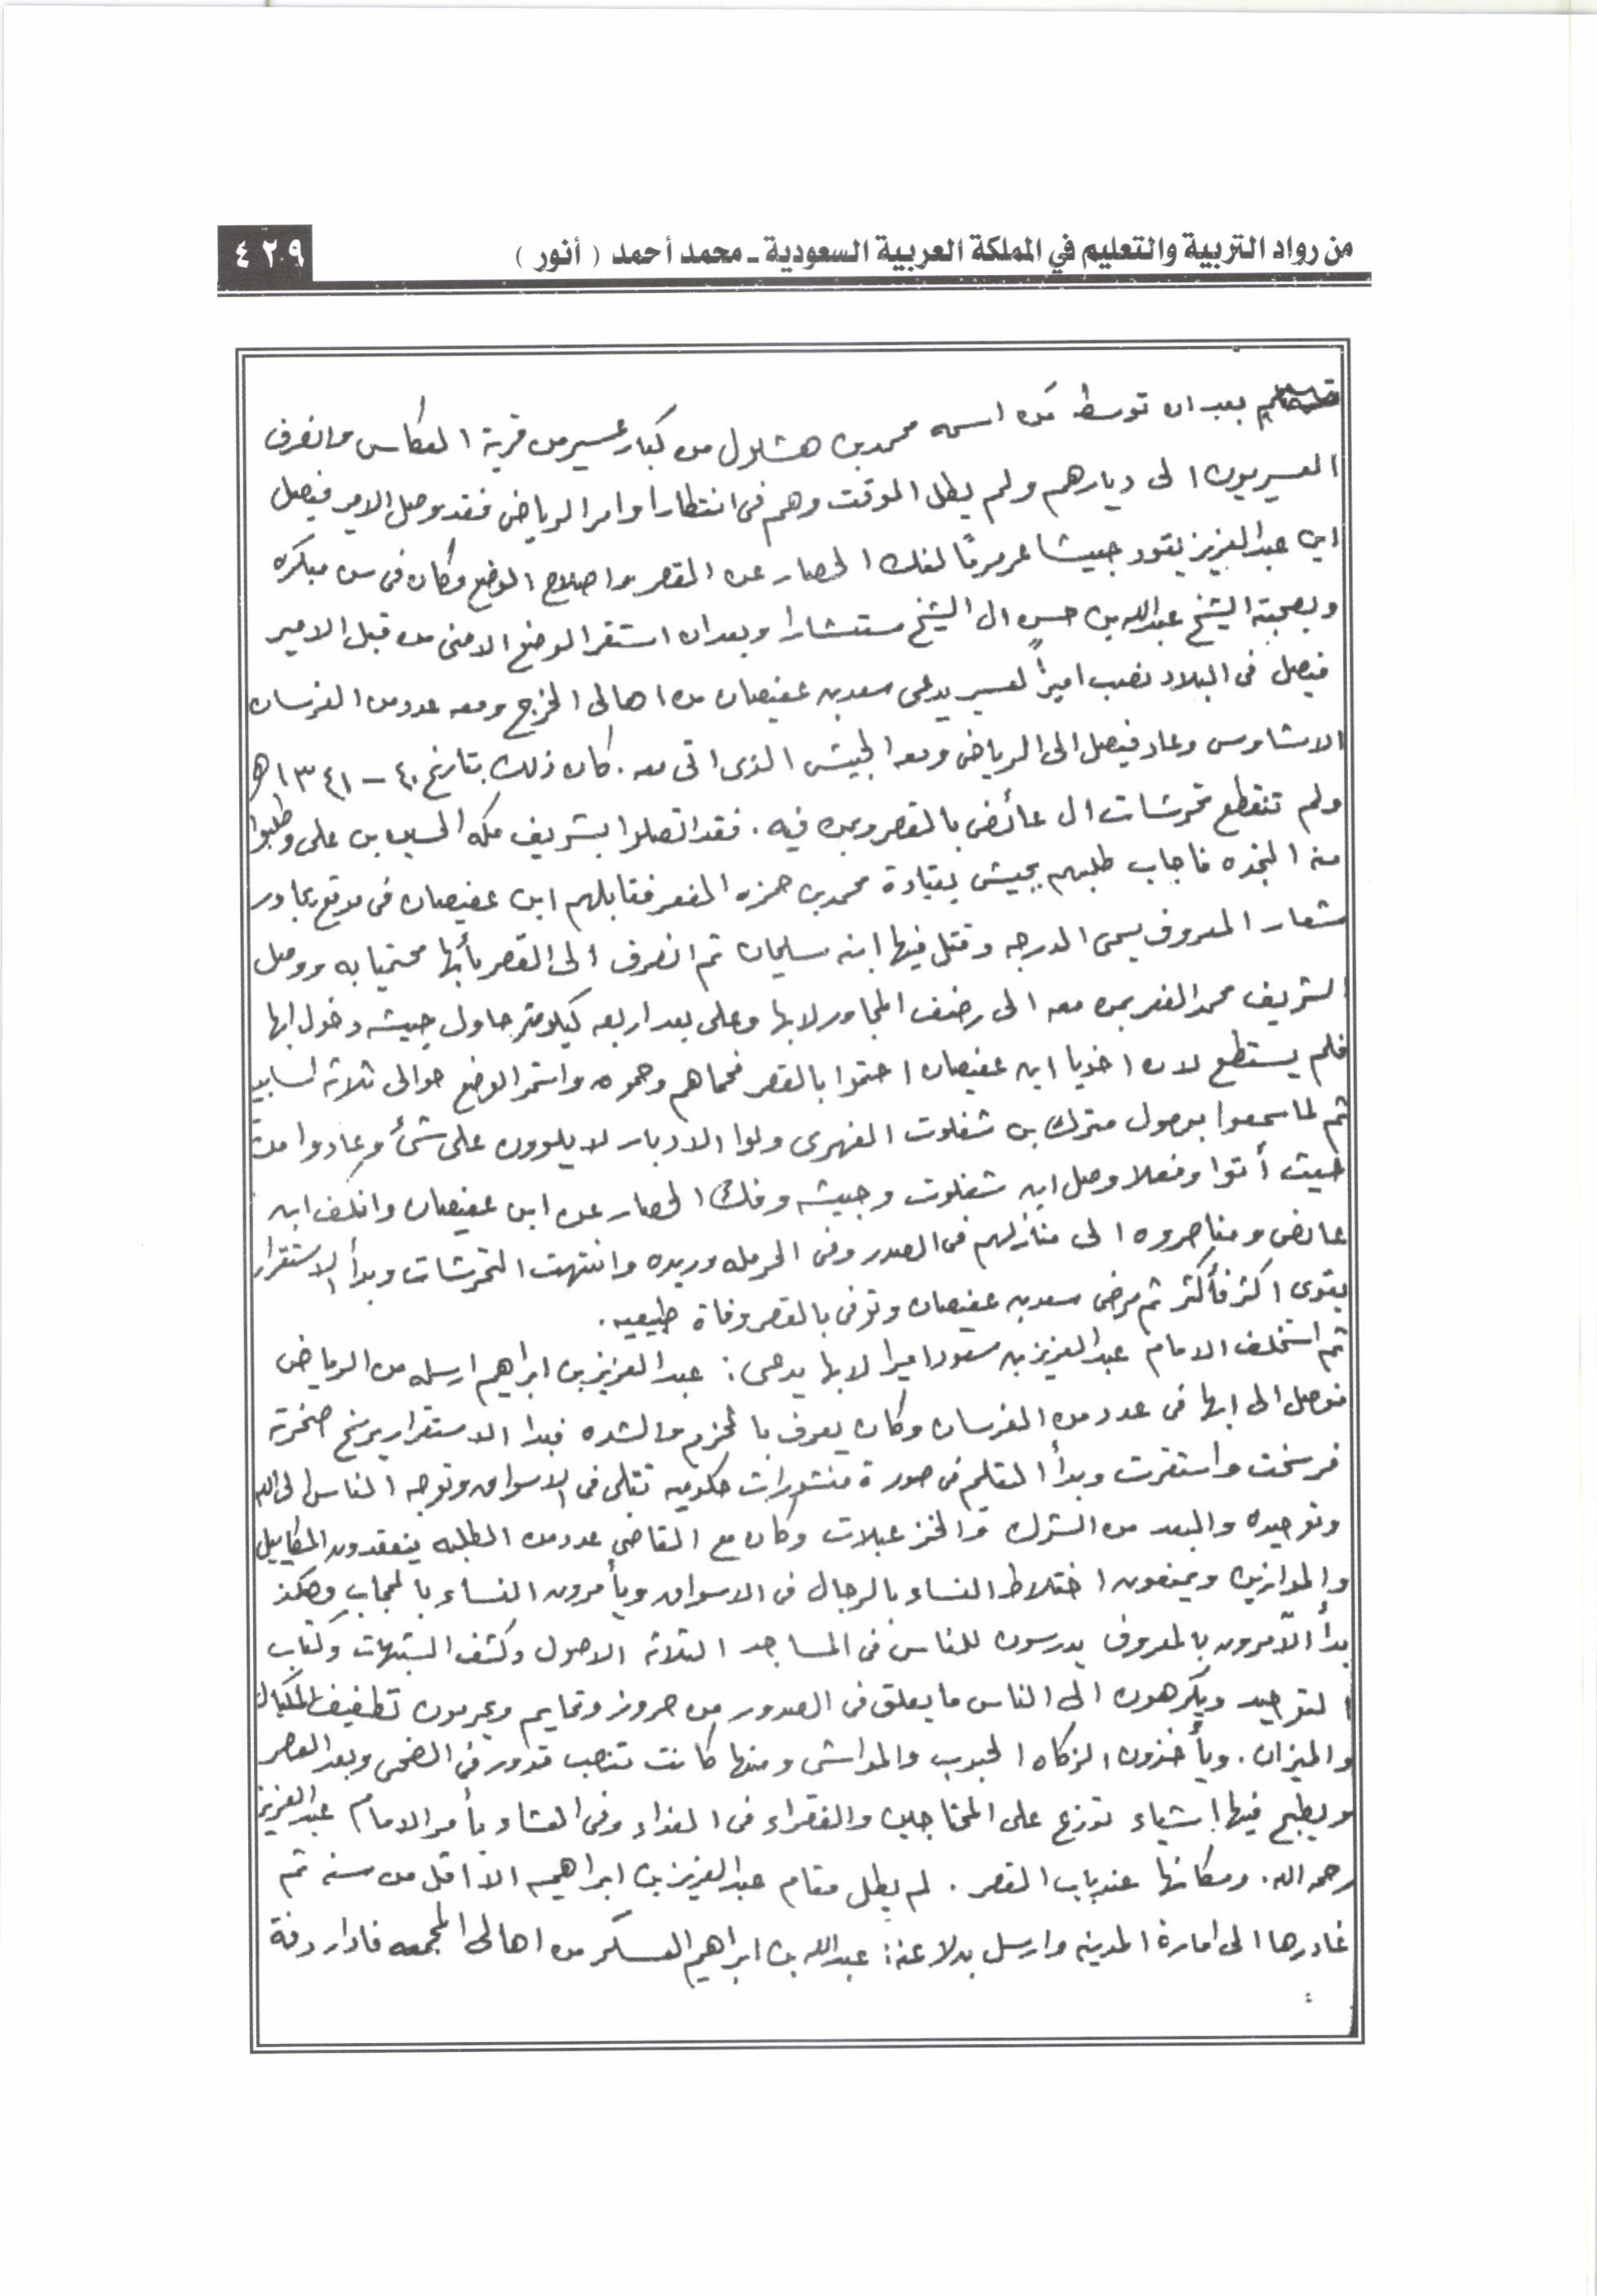 من رواد التربية والتعليم في المملكة العربية السعودية ـ محمد أحمد ( أنور )
٤٢٠٩
بعد ان توسط من اسمه محمد بن هشلول من كبار عسير من قرية العكاس وانصرف
العسيريون الى ديارهم ولم يطل الوقت وهم فى انتظار اوامر الرياض فقد وصل الامير فيصل
ابن عبدالعزيز يقود جيشا عرمرمًا لفك الحصار عن القصر واصلاح الوضع وكان فى سن مبكره
وبصحبته الشيخ عبدالله بن حسن ال الشيخ مستشارا وبعد ان استقر الوضع الامنى من قبل الامير
فيصل فى البلاد نصب اميرًا لعسير يدعى سعد بن عفيصان من اهالى الخرج ومعه عدد من الفرسان
الاشاوس وعاد فيصل الى الرياض ومعه الجيش الذى اتى معه . كان ذلك بتاريخ ٤٠ – ١٣٤١ هـ
ولم تنقطع تحرشات ال عائض بالقصر وبمن فيه . فقد اتصلوا بشريف مكه الحسين بن على وطلبوا
منه النجده فاجاب طلبهم بجيش بقيادة محمد بن حمزه الفعر فقابلهم ابن عفيصان فى موقع بجاور
شعار المعروف يسمى الدرجه وقتل فيها ابنه سليمان ثم انصرف الى القصر بأبها محتميا به ووصل
الشريف محمد الفعر بمن معه الى رضف المجاور لابها وعلى بعد اربعه كيلومتر حاول جيشه دخول ابها
فلم يستطع لان اخويا ابن عفيصان احتموا بالقصر فحماهم وحموه واستمر الوضع حوالى ثلاثة اسابيع
ثم لما سمعوا بوصول مترك بن شفلوت الفهرى ولوا الادبار لا يلوون على شئ وعادوا من
حيث أتوا وفعلا وصل ابن شفلوت وجيشه وفك الحصار عن ابن عفيصان وانكف ابن
عائض ومناصروه الى منازلهم فى الصدر وفى الحرمله وريده وانتهت التحرشات وبدأ الاستقرار
يقوى اكثر فأكثر ثم مرض سعد بن عفيصان وتوفى بالقصر وفاة طبيعيه .
ثم استخلف الامام عبدالعزيز بن سعود اميرا لابها يدعى : عبدالعزيز بن ابراهيم ارسله من الرياض
فوصل الى ابها فى عدد من الفرسان وكان يعرف بالحزم والشده فبدا الاستقرار يرسخ صخرته
فرسخت واستقرت وبدأ التعليم فى صورة منشورات حكوميه تتلى فى الاسواق وتوجه الناس الى الله
وتوحيده والبعد من الشرك والخزعبلات وكان مع القاضى عدد من الطلبه يتفقدون المكاييل
والموازين ويمنعون اختلاط النساء بالرجال فى الاسواق ويأمرون النساء بالحجاب وهكذ
بدأ الآمرون بالمعروف يدرسون للناس فى المساجد الثلاثه الاصول وكشف الشبهات وكتاب
التوحيد ويكرهون الى الناس ما يعلق فى الصدور من حروز وتمايم ويحرمون تطفيف المكيال
والميزان . ويأخذون الزكاه الحبوب والمواشى ومنها كانت تنصب قدور فى الضحى وبعد العصر
ويطبخ فيها اشياء توزع على المحتاجين والفقراء فى الغداء وفى العشاء بأمر الامام عبدالعزيز
رحمه الله . ومكانها عند باب القصر . لم يطل مقام عبدالعزيز بن ابراهيم الا اقل من سنه ثم
غادرها الى امارة المدينه وارسل بدلا عنه : عبدالله بن ابراهيم العسكر من اهالى المجمعه فادار دفة